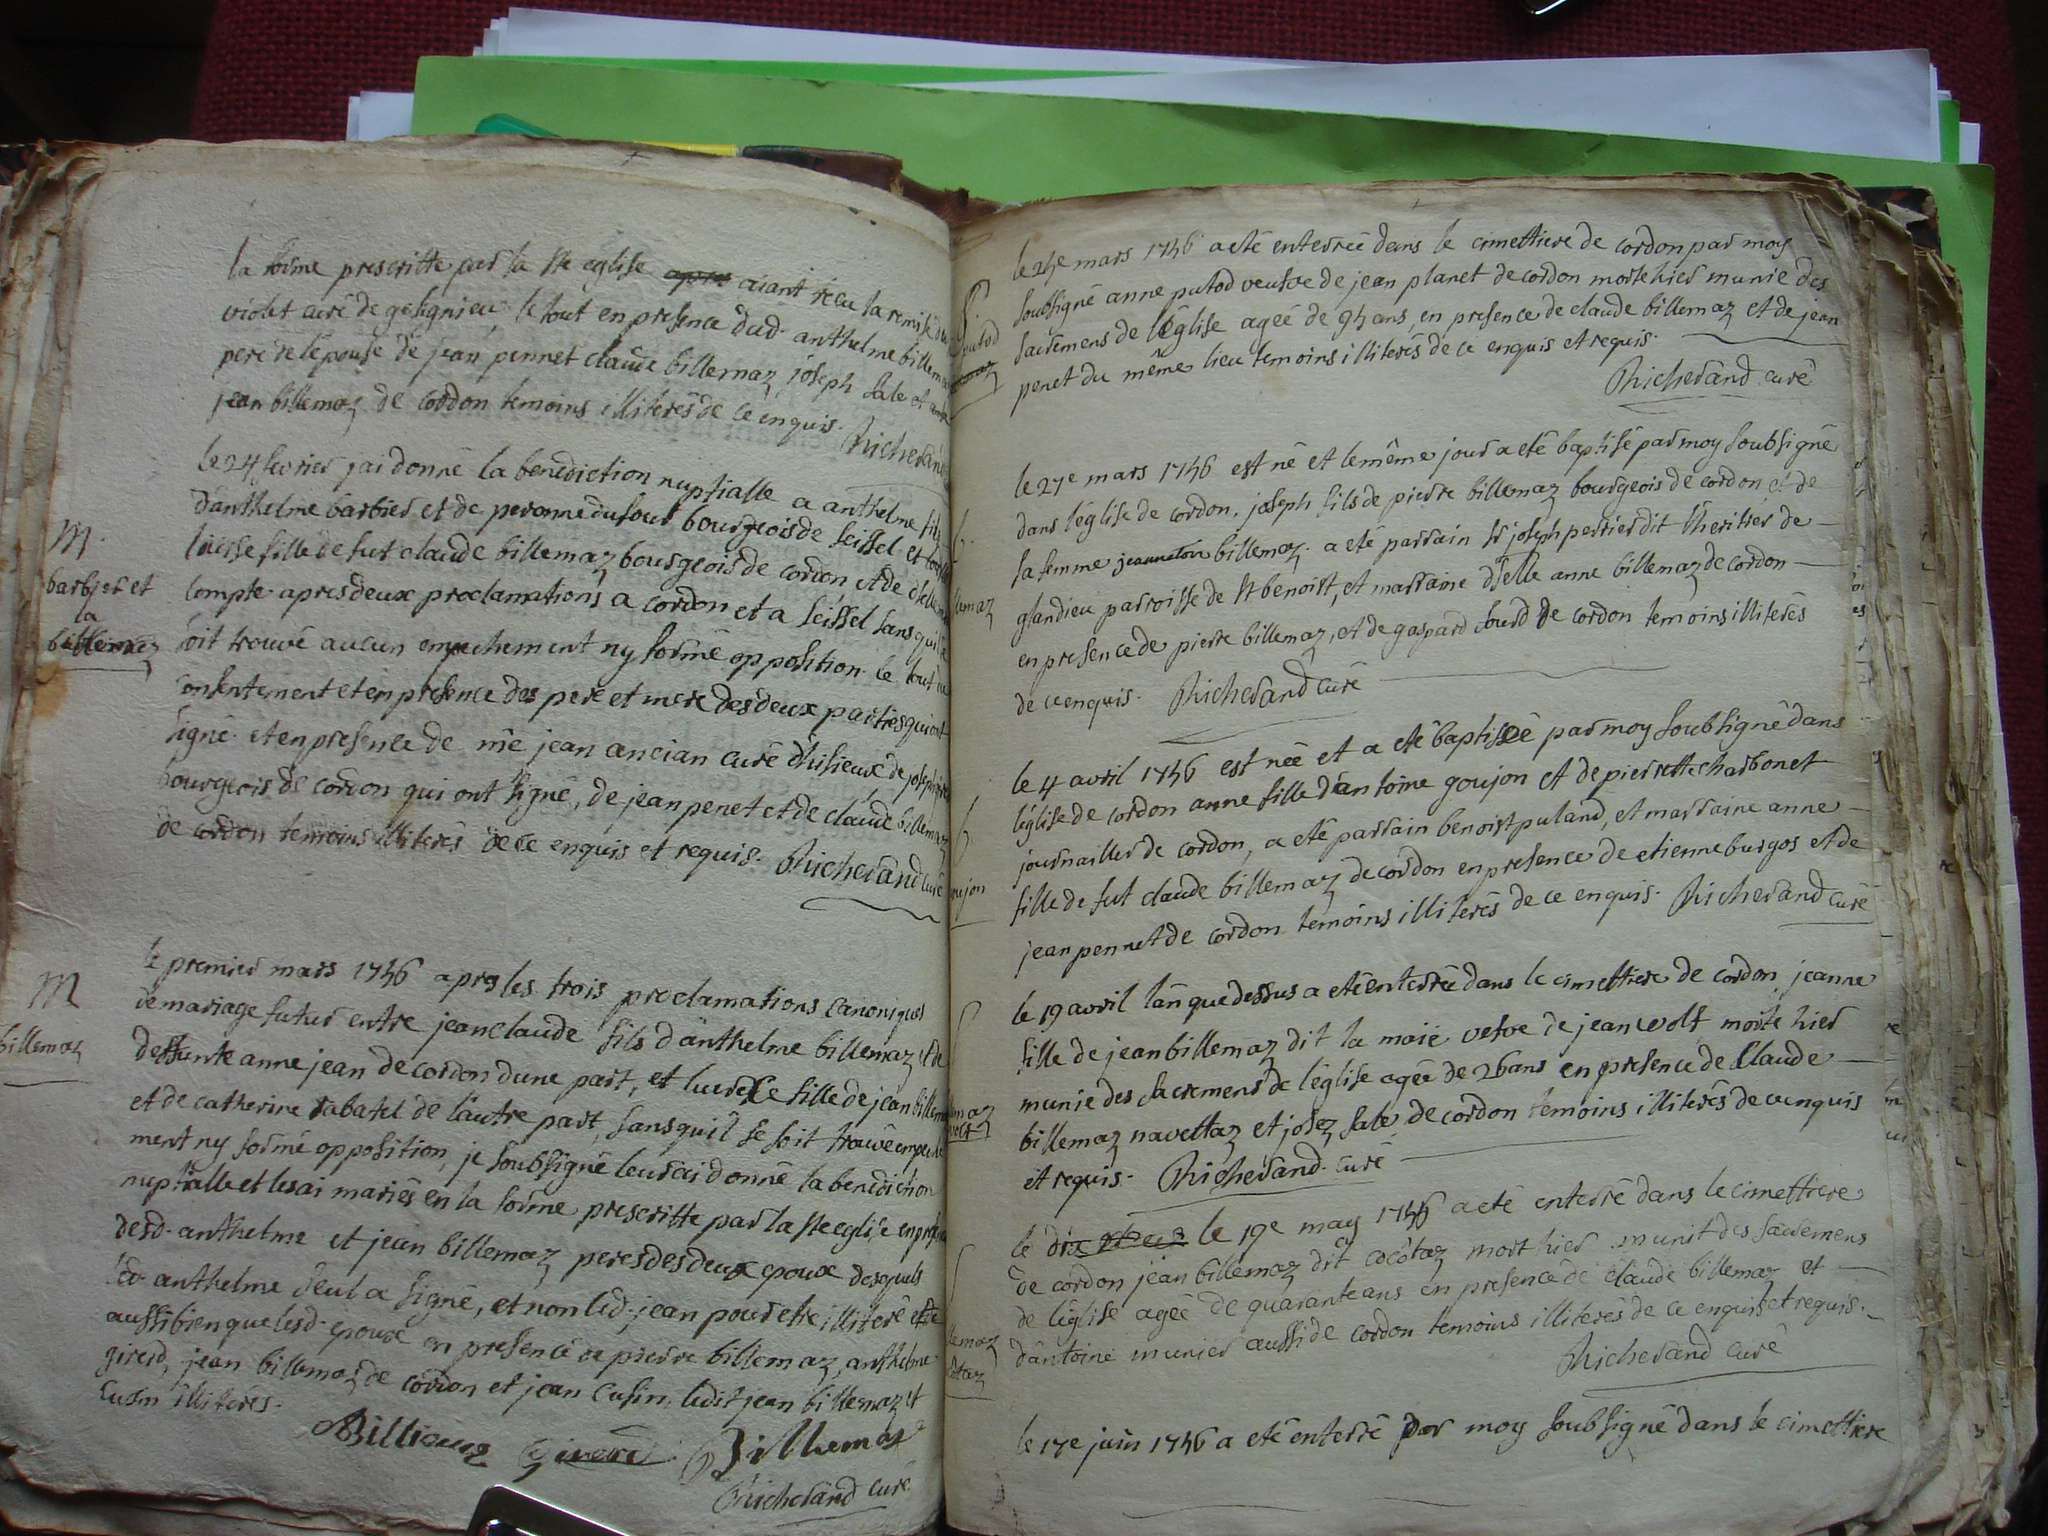 la forme prescritte par la ste eglise apres aiant receu la remise du
violet curé de gelignieu, le tout en presence dud. anthelme billemaz
pere de lépouse de jean pennet claude billemaz, joseph sale et
jean billemaz de cordon temoins illiterés de ce enquis. Richerand
M.
barbier et
la
billemaz
le 24 fevrier jai donné la benediction nuptialle a anthelme fils
danthelme barbier et de peronne dufour bourgeois de seissel et
fille de fut claude billemaz bourgeois de cordon, et de
compte apres deux proclamations a cordon et a seissel sans quil se
soit trouvé aucun empechement ny formé opposition. le tout du
consentement et en presence des pere et mere des deux parties qui ont
signé. et en presence de mre jean ancian curé d'hisieux, de joseph
bourgeois de cordon qui ont signé, de jean penet et de claude billemaz
de cordon temoins illiterés de ce enquis et requis. Richerand curé
M
billemaz
le premier mars 1746 apres les trois proclamations canoniques
de mariage futur entre jeanclaude fils d'anthelme billemaz et de
deffunte anne jean de cordon dune part, et lucresse fille de jean billemaz
et de catherine rabatel de l'autre part, sans quil se soit trouvé empeche
ment ny formé opposition, je soubsigné leur ai donné la benediction
nuptialle et les ai mariés en la forme prescritte par la ste eglise en presence
desd. anthelme et jean billemaz peres des deux epoux desquels
led. anthelme seul a signé, et non led. jean pour etre illiteré
aussi bien que lesd. epoux en presence de pierre billemaz, anthelme
girerd, jean billemaz de cordon et jean cusin, ledit jean billemaz et
cusin illiterés.
Billiemaz Girerd Billiemaz
Richerand curé
putod
le 25e mars 1746 a eté enterrée dans le cimettiere de cordon par moy
soubsigné anne putod veufve de jean planet de cordon morte hier munie des
sacremens de l'église agée de 95 ans, en presence de claude billemaz et de jean
penet du même lieu temoins illiterés de ce enquis et requis.
Richerand curé
b.
llemaz
le 27e mars 1746 est né et le même jour a eté baptisé par moy soubsigné
dans l'église de cordon, joseph fils de pierre billemaz bourgeois de cordon et de
sa femme jeanneton billemaz. a eté parrain sr joseph perrier dit l'heritier de
glandieu parroisse de st benoist, et marraine dselle anne billemaz de cordon
en presence de pierre billemaz, et de gaspard sourd de cordon temoins illiterés
de ce enquis. Richerand curé
b
oujon
le 4 avril 1746 est née et a eté baptisée par moy soubsigné dans
l'église de cordon anne fille d'antoine goujon et de pierrette charbonet
journailler de cordon, a eté parrain benoist puland, et marraine anne
fille de fut claude billemaz de cordon en presence de etienne burgos et de
jean pennet de cordon temoins illiterés de ce enquis. Richerand curé
le 19 avril l'an que dessus a eté enterrée dans le cimettiere de cordon jeanne
fille de jean billemaz dit la maie vefve de jean wolf morte hier
munie des sacremens de l'église agée de 26 ans en presence de Claude
billemaz navettaz et josez sale de cordon temoins illiterés de ce enquis
et requis. Richerand. curé
llemaz
le le 19e may 1746 a eté enterré dans le cimettiere
de cordon jean billemaz dit cocôtaz mort hier munit des sacremens
de l'église agée de quarante ans en presence de claude billemaz et
d'antoine munier aussi de cordon temoins illiterés de ce enquis et requis.
Richerand curé
le 17e juin 1746 a eté enterré par moy soubsigné dans le cimettiere